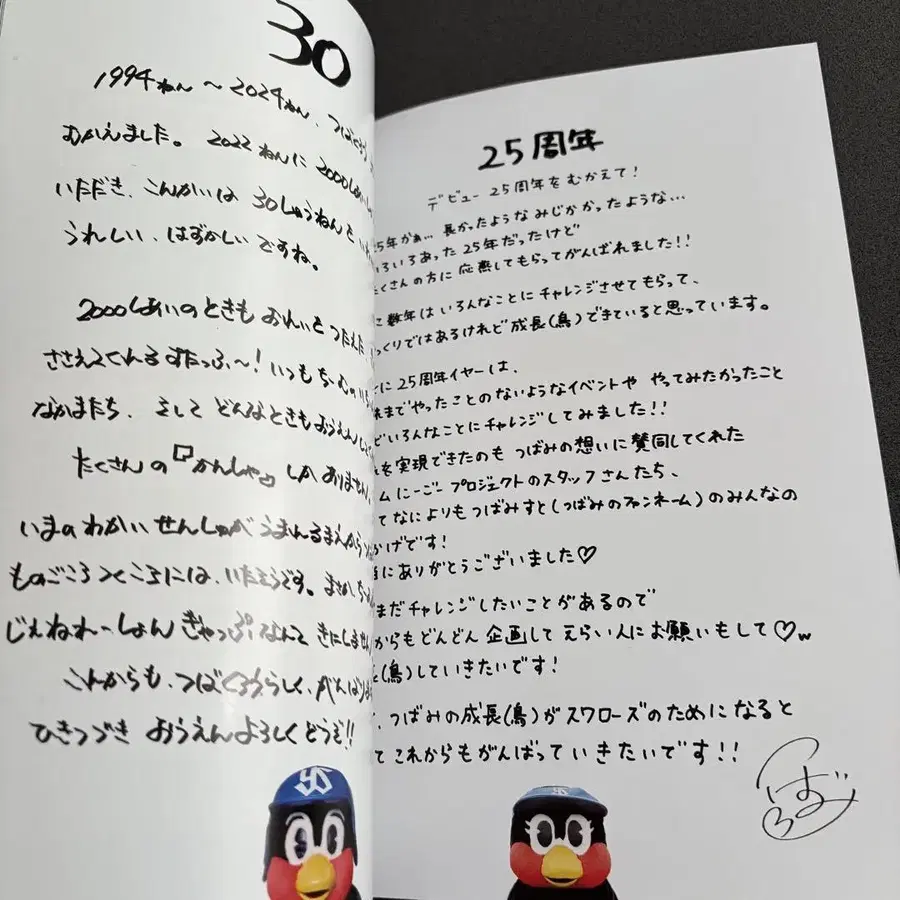 30
1994ねん〜2024ねん、つばくろう
むかえました。2022ねんに2000しあい
いただき、こんかいは30しゅうねんを
うれしい、はずかしいですね。
2000しあいのときもおれいをつたえた
ささえてくれるすたっふ〜!いつもちーむの
なかまたち、そしてどんなときもおうえん
たくさんの『かんしゃ』しかありません。
いまのわかいせんしゅがうまれるまえから
ものごころつくころには、いたそうです。まさか、
じぇねれーしょんぎゃっぷなんてきにしません
これからも、つばくろうらしく、がんばりま
ひきつづきおうえんよろしくどうぞ!!
YS
25周年
デビュー25周年をむかえて!
25年かぁ…長かったようなみじかかったような…
いろいろあった25年だったけど
たくさんの方に応援してもらってがんばれました!!
こ数年はいろんなことにチャレンジさせてもらって、
っくりではあるけれど成長(鳥)できていると思っています。
に25周年イヤーは、
れまでやったことのないようなイベントややってみたかったこと
どいろんなことにチャレンジしてみました!!
を実現できたのもつばみの想いに賛同してくれた
ムにーごープロジェクトのスタッフさんたち、
てなによりもつばみすと(つばみのファンネーム)のみんなの
かげです!
にありがとうございました♡
まだチャレンジしたいことがあるので
からもどんどん企画してえらい人にお願いもして♡w
(鳥)していきたいです!
、つばみの成長(鳥)がスワローズのためになると
てこれからもがんばっていきたいです!!
YS